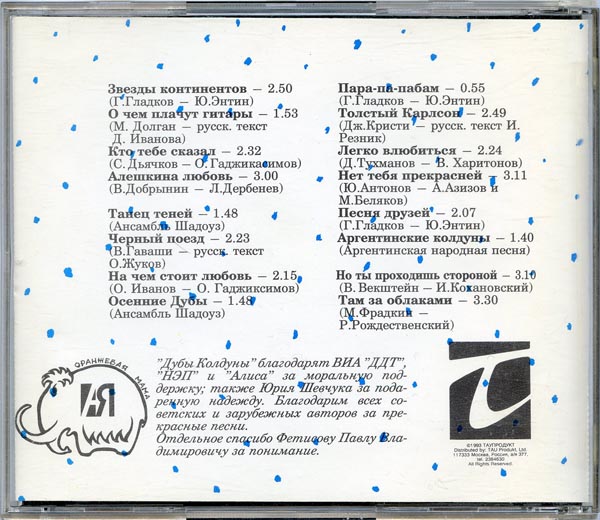 Звезды континентов — 2.50
(Г.Гладков — Ю.Энтин)
О чем плачут гитары — 1.53
(М. Долган — русск. текст
Д. Иванова)
Кто тебе сказал — 2.32
(С. Дьячков — О.Гаджикасимов)
Алешкина любовь — 3.00
(В.Добрынин — Л.Дербенев)
Танец теней — 1.48
(Ансамбль Шадоуз)
Черный поезд — 2.23
(В.Гаваши — русск. текст
О.Жуков)
На чем стоит любовь — 2.15
(О. Иванов — О. Гаджиксимов)
Осенние Дубы — 1.48
(Ансамбль Шадоуз)
Пара-па-пабам — 0.55
(Г.Гладков — Ю.Энтин)
Толстый Карлсон — 2.49
(Дж.Кристи — русск. текст И.
Резник)
Легко влюбиться — 2.24
(Д.Тухманов — В. Харитонов)
Нет тебя прекрасней — 3.11
(Ю.Антонов — А.Азизов и
М.Беляков)
Песня друзей — 2.07
(Г.Гладков — Ю.Энтин)
Аргентинские колдуны — 1.40
(Аргентинская народная песня)
Но ты проходишь стороной — 3.10
(В. Векштейн — И.Кохановский)
Там за облаками — 3.30
(М.Фрадкин —
Р.Рождественский)
ОРАНЖЕВАЯ МАМА
АЯ
"Дубы Колдуны" благодарят ВИА "ДДТ",
"НЭП" и "Алиса" за моральную под-
держку; также Юрия Шевчука за пода-
ренную надежду. Благодарим всех со-
ветских и зарубежных авторов за пре-
красные песни.
Отдельное спасибо Фетисову Павлу Вла-
димировичу за понимание.
©1993 ТАУПРОДУКТ
Distributed by: TAU Produkt, Ltd.
117333 Москва, Россия, а/я 377,
tel. 2384630
All Rights Reserved.